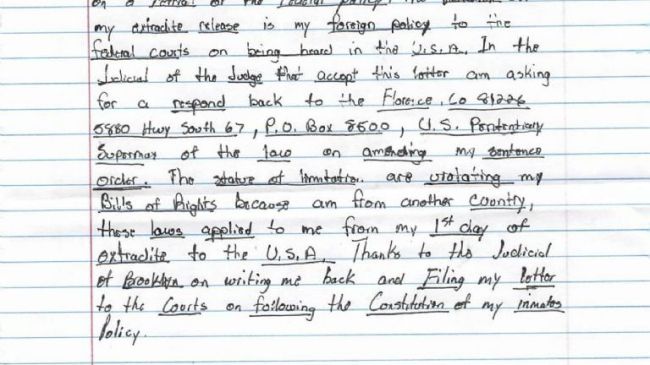 my extradite release is my foreign policy to the
federal courts on being heard in the U.S.A. In the
Judicial of the Judge that accept this letter am asking
for a respond back to the Florence, Co 81226
5880 Hwy South 67, P.O. Box 8500, U.S. Penitentiary
Supermax of the law on amending my sentence
order. The statue of limitation are violating my
Bills of Rights because am from another country,
these laws applied to me from my 1st day of
extradite to the U.S.A. Thanks to the Judicial
of Brooklyn on writing me back and Filing my letter
to the Courts on following the Constitution of my inmates
Policy.